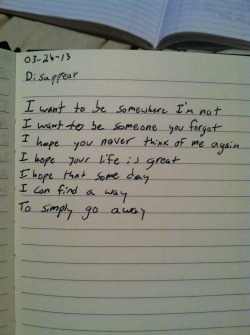 03-26-13
Disappear
I want to be somewhere I'm not
I want to be someone you forgot
I hope you never think of me again
I hope your life is great
I hope that some day
I can find a way
To simply go away